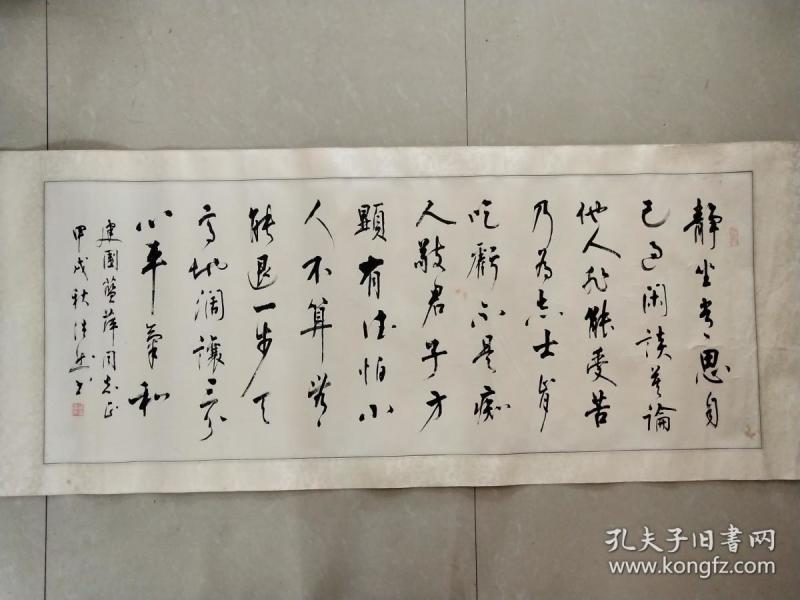 静坐常々思自
己过闲谈莫论
他人非能受苦
乃为志士肯
吃虧不是痴
人敬君子方
顯有德怕小
人不算无
能退一步天
高地阔讓三分
心平氣和
建國 萍同志正
甲戌秋 书
孔夫子旧书网
www.kongfz.com